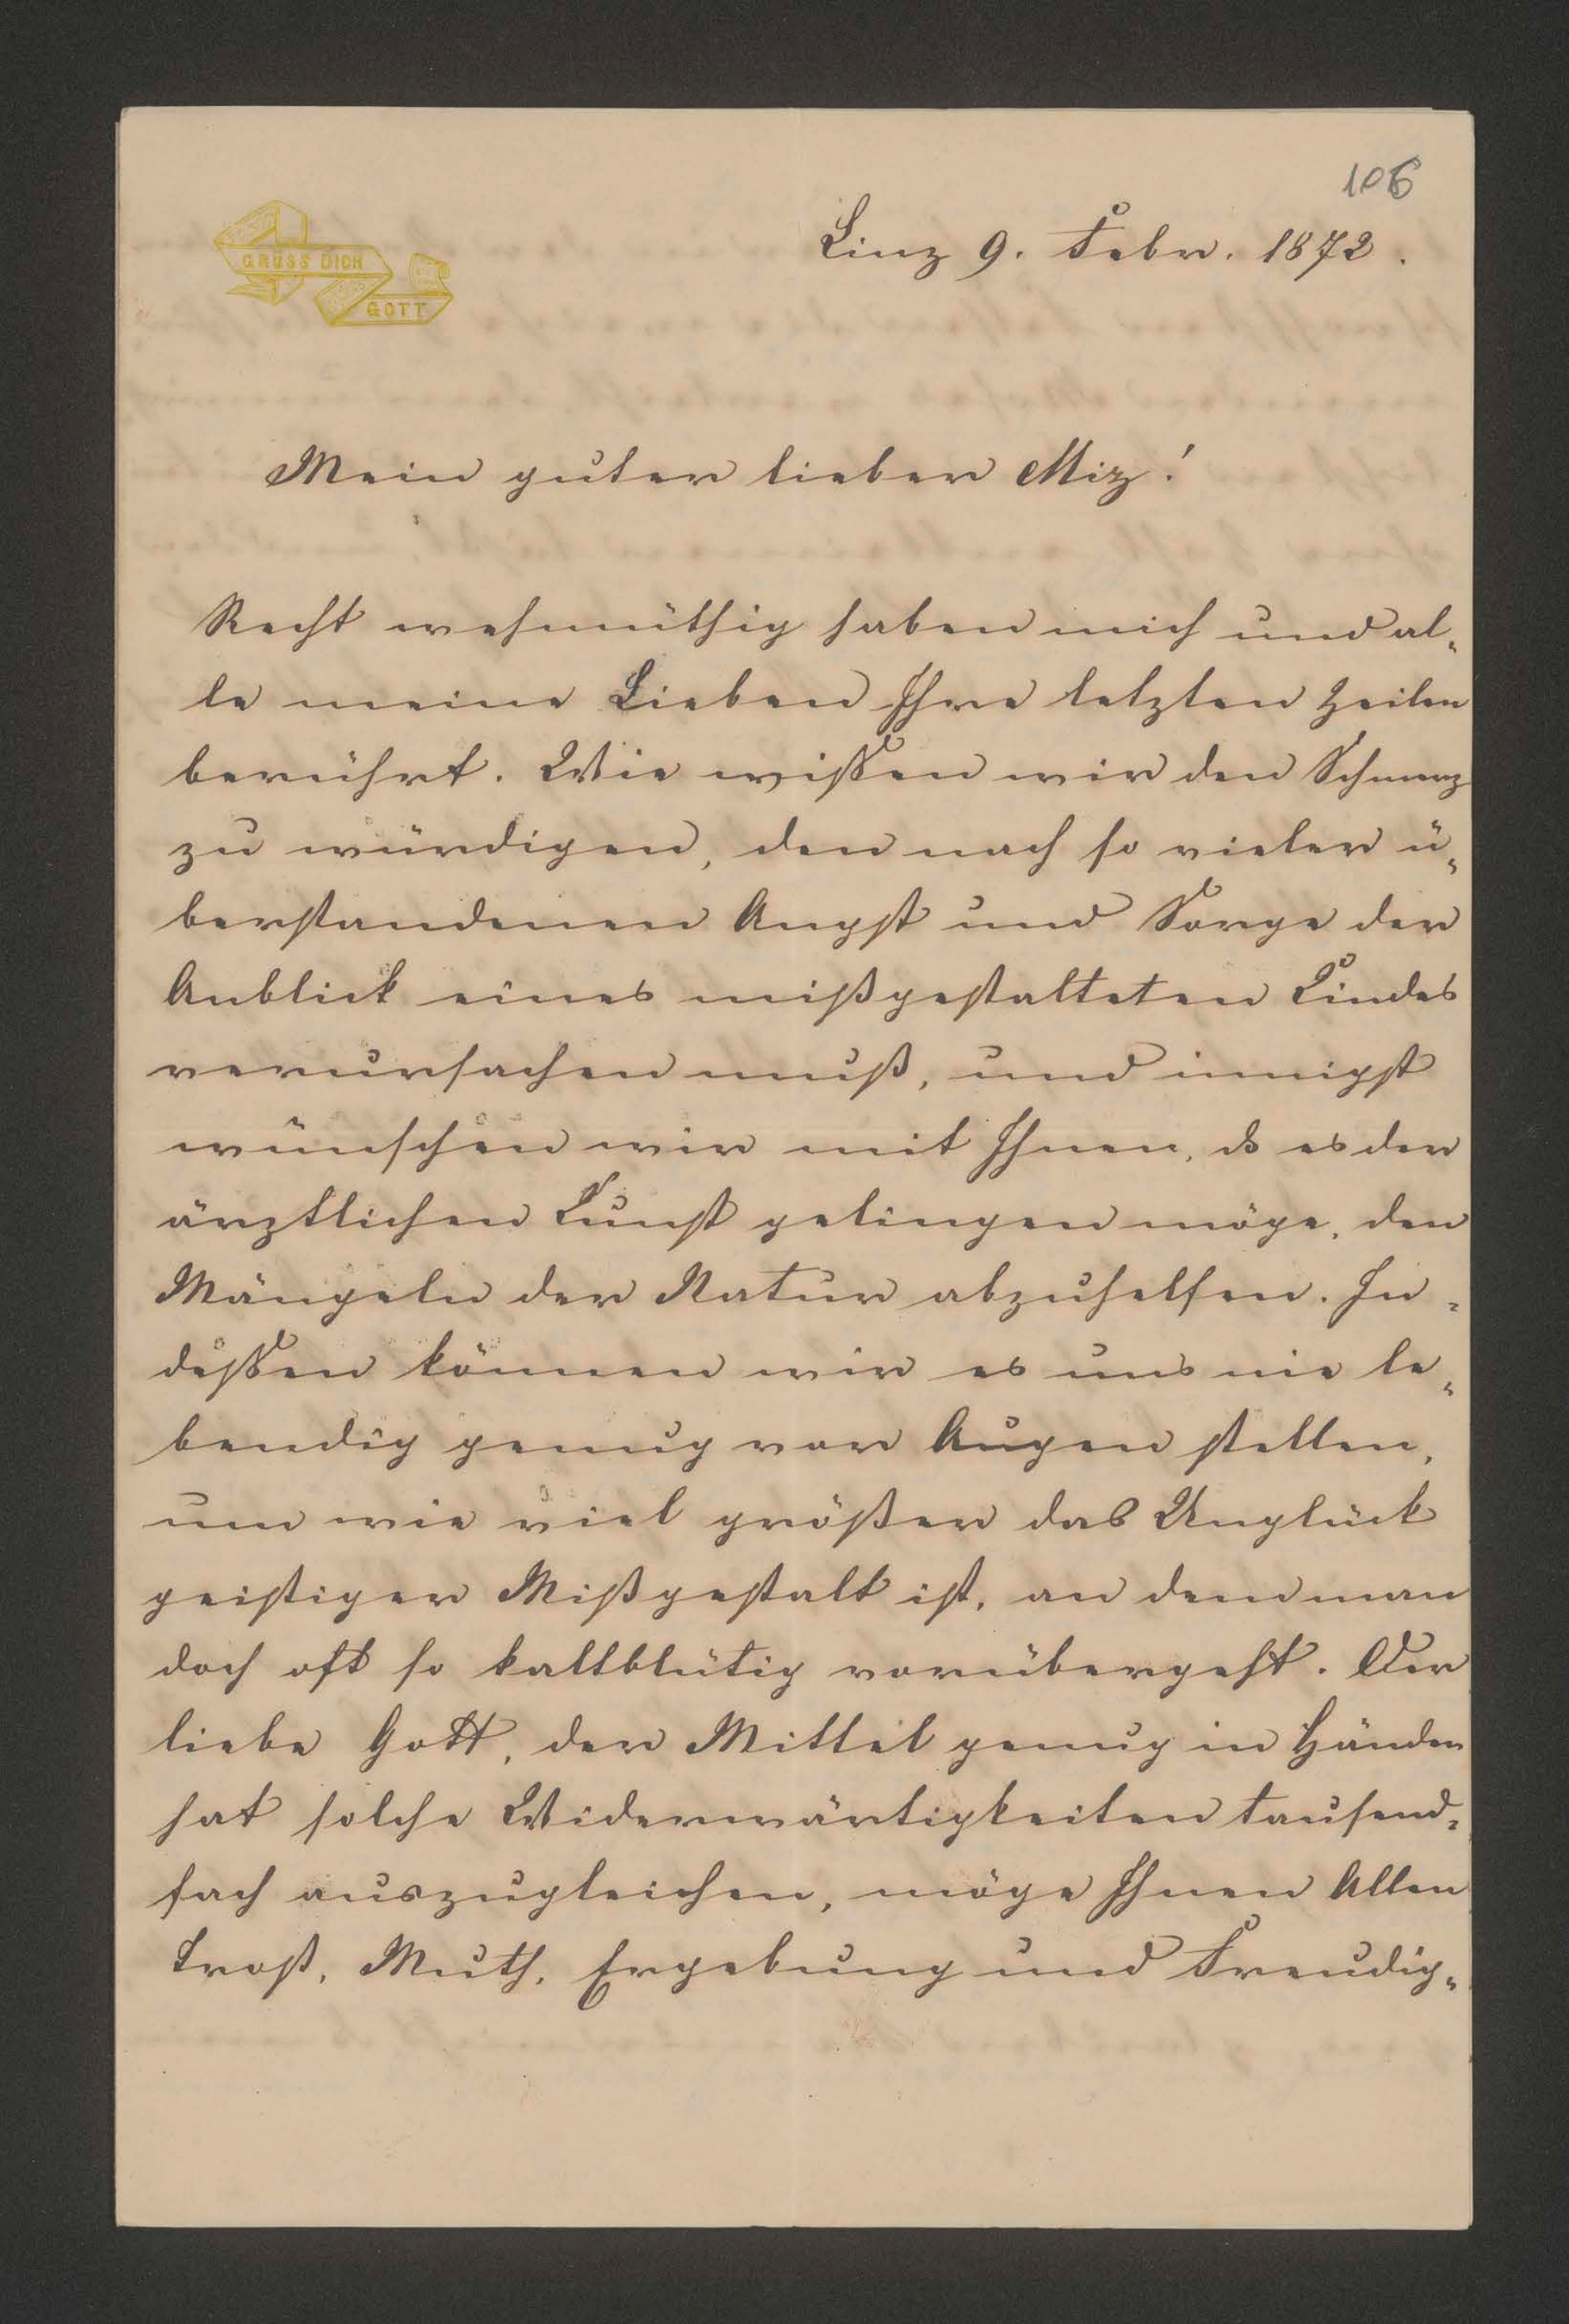 106
GRÜSS DICH
GOTT
Linz 9. Febr. 1872.
Mein guter lieber Miz!
Recht wehmüthig haben mich und al-
le meine Lieben Ihre letzten Zeilen
berührt. Wie wißen wir den Schmerz
zu würdigen, den nach so vieler ü-
berstandenen Angst und Sorge der
Anblick eines mißgestalteten Kindes
verursachen muß, und innigst
wünschen wir mit Ihnen, ds es der
ärztlichen Kunst gelingen möge, den
Mängeln der Natur abzuhelfen. In-
deßen können wir es uns nie le-
bendig genug vor Augen stellen,
um wie viel größer das Unglück
geistiger Mißgestalt ist, an dem man
doch oft so kaltblütig vorübergeht. Der
liebe Gott, der Mittel genug in Händen
hat solche Widerwärtigkeiten tausend-
fach auszugleichen, möge Ihnen Allen
Trost, Muth, Ergebung und Freudig-